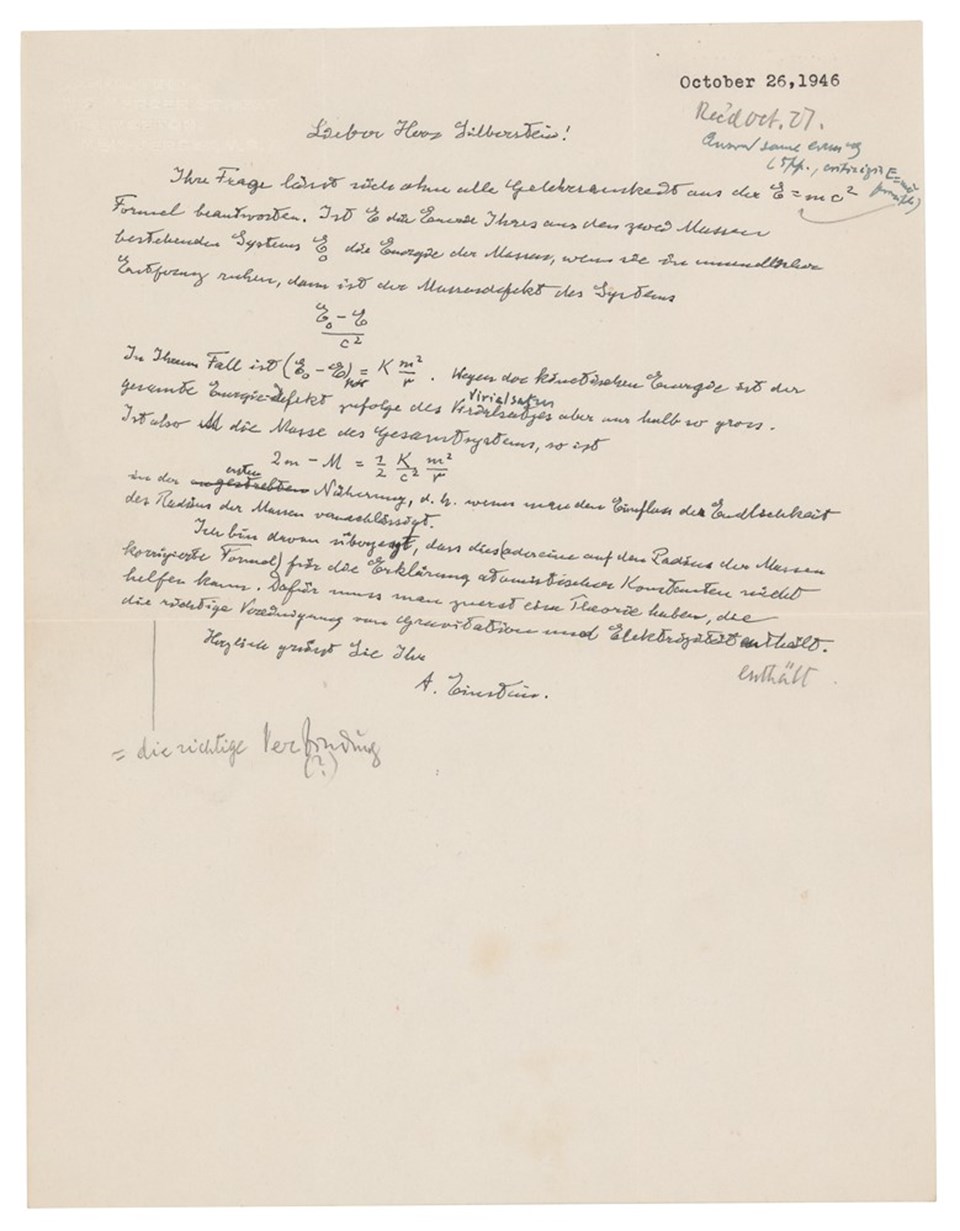 October 26,1946
Rec'd Oct. 27.
Answ'd same evening
(5pp., criticizing E=mc²
Lieber Herr Silberstein!
Ihre Frage lässt sich ohne alle Gelehrsamkeit aus der E=mc²
Formel beantworten. Ist E die Energie Ihres aus den zwei Massen
bestehenden Systems E₀ die Energie der Massen, wenn sie in unendlicher
Entfernung ruhen, dann ist der Massendefekt des Systems
E₀ - E
c²
In Ihrem Fall ist (E₀ - E) = K m²/r . Wegen der kinetischen Energie ist der
Virialsatzes
gesamte Energie-Defekt zufolge des Virialsatzes aber nur halb so gross.
Ist also M die Masse des Gesamtsystems, so ist
2m - M = 1/2 K/c² m²/r
ersten
in der Näherung, d. h. wenn man den Einfluss der Endlichkeit
des Radius der Massen vernachlässigt.
Ich bin davon überzeugt, dass dies (oder eine auf den Radius der Massen
korrigierte Formel) für die Erklärung atomistischer Konstanten nicht
helfen kann. Dafür muss man zuerst eine Theorie haben, die
die richtige Vereinigung von Gravitation und Elektrizität enthält.
enthält
Herzlich grüsst Sie Ihr
A. Einstein.
= die richtige Verbindung
(?)